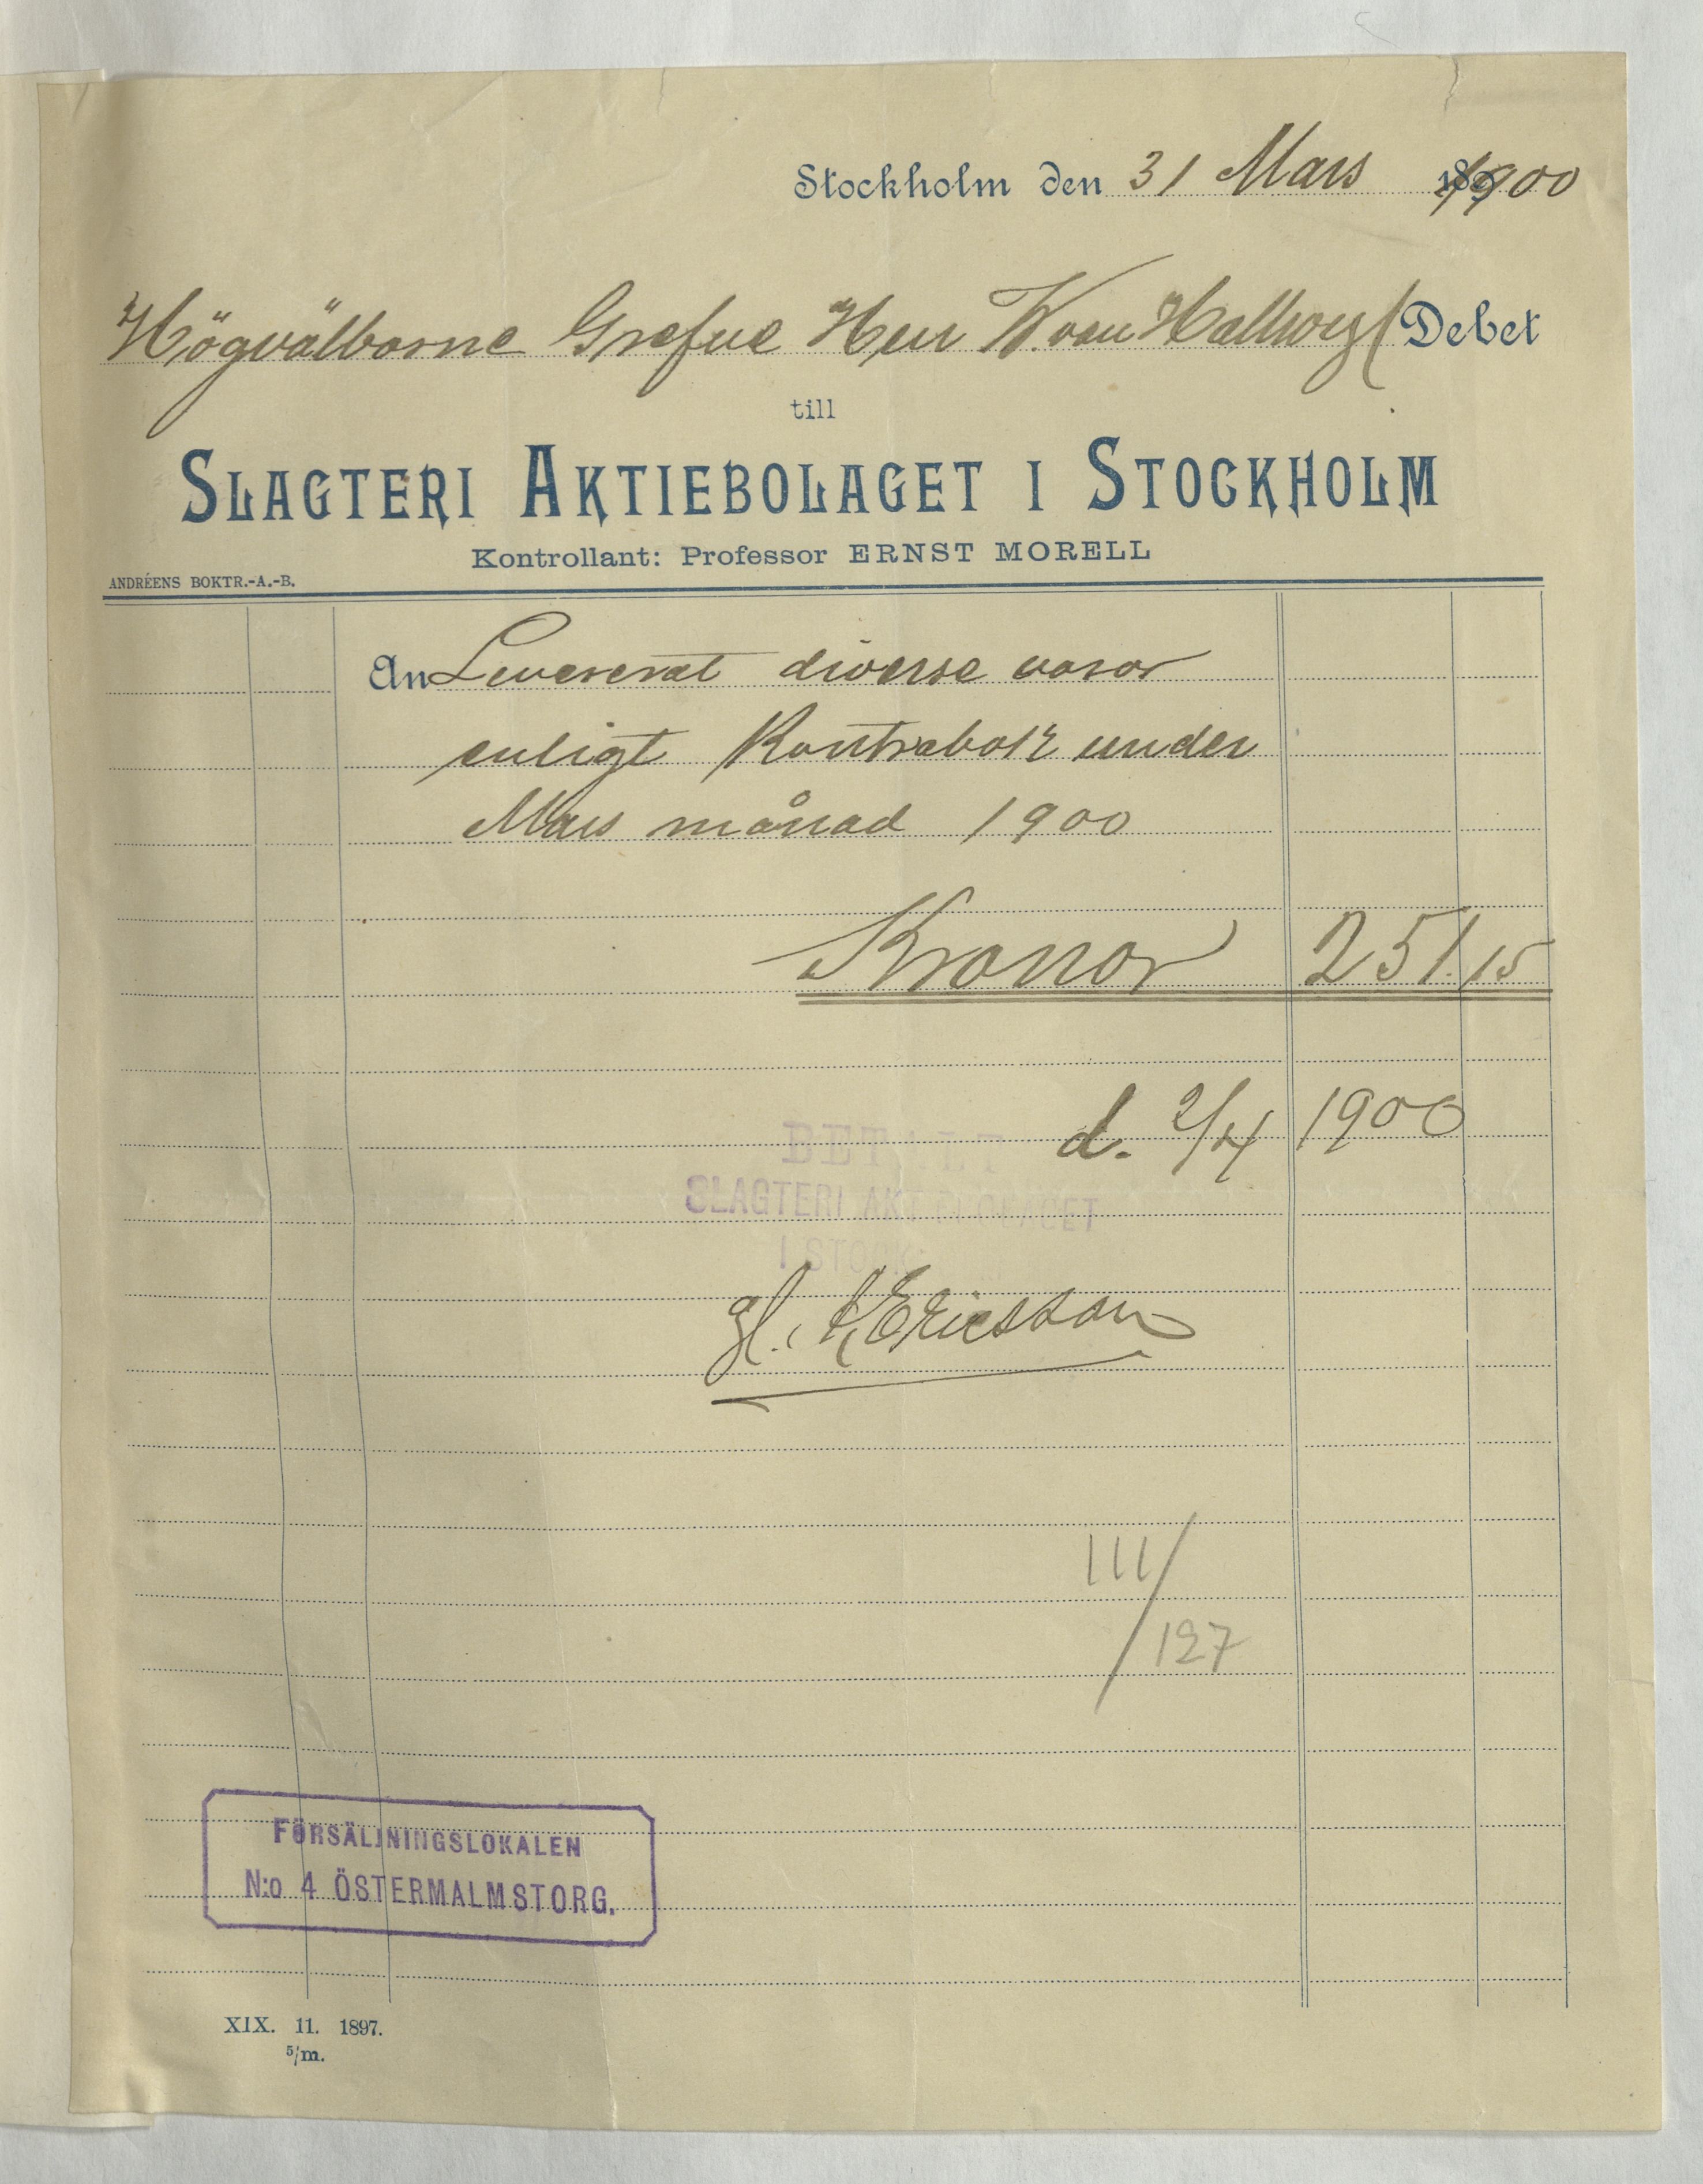 Stockholm den 31 Mars 1900
Högvälborne Grefve Herr W. von Hallwyl Debet
till
SLAGTERI AKTIEBOLAGET I STOCKHOLM
Kontrollant: Professor ERNST MORELL
ANDRÉENS BOKTR.-A.-B.
An Levererat diverse varor
enligt Kontrabok under
Mars månad 1900
Kronor 251.15
d. 2/4 1900
BETALT
SLAGTERI AKTIEBOLAGET
I STOCKHOLM
Ericsson
111/127
FÖRSÄLJNINGSLOKALEN
N:o 4 ÖSTERMALMSTORG.
XIX. 11. 1897.
5/m.